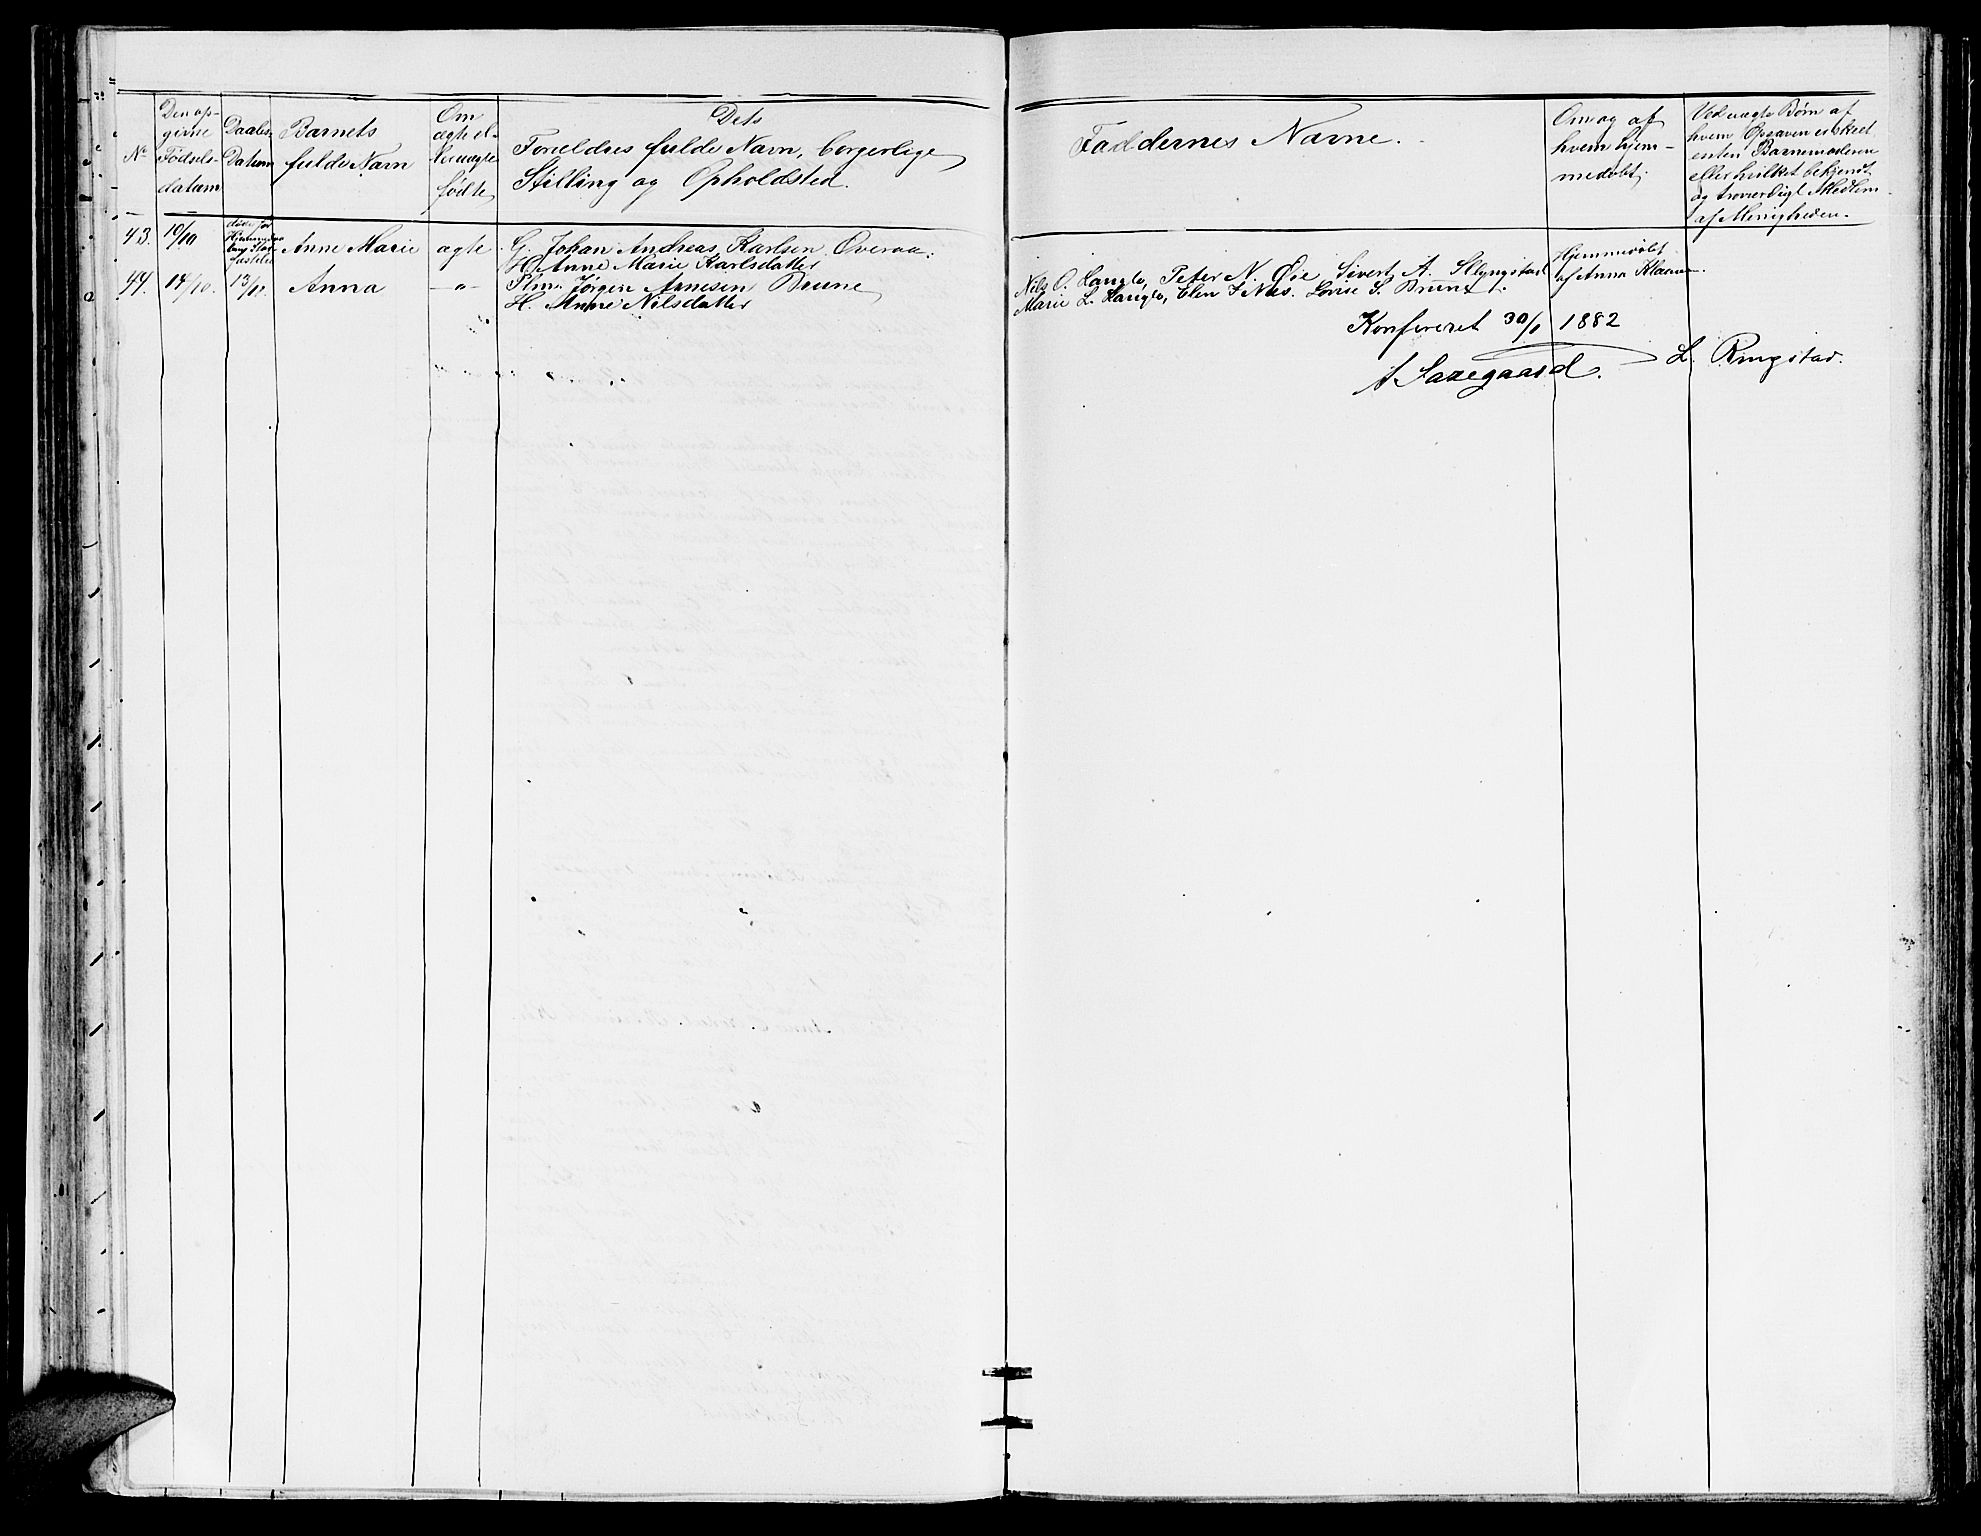 No
Den op-
givne
Födsels-
datum
Daabs-
Datum
Barnets
fulde Navn
Om
ægte el-
ler uægte
födte
Dets
Foreldres fulde Navn, borgerlige
Stilling og Opholdsted.
Faddernes Navne.
Om og af
hvem hjem-
medøbt.
Ved uægte Børn af
hvem Opgaven er skeet
enten Barnemoderen
eller hvilket bekjendt
og troværdigt Medlem
af Menigheden.
43. 10/10 døde før Anne Marie ægte G. Johan Andreas Karlsen Overaa.
H. Anne Marie Karlsdatter
44. 14/10. 13/11 Anna —"— Plm. Jørgen Arnesen Brune
H. Anne Nilsdatter
Nils O. Langlo, Peter N. Øie Sivert A. Slyngstad
Marie L. Langlo, Elen J. Nes. Lovise S. Brune.
Hjemmedøbt
af Anna
Konfereret 30/1 1882
A Saxegaard. L. Ringstad.